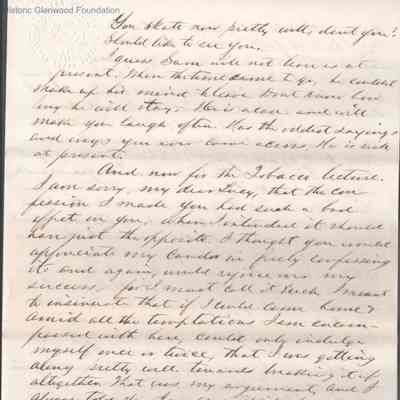 Historic Glenwood Foundation
You skate now pretty well, dont you?
Should like to see you.
I guess Sam will not leave us at
present. When the time came to go, he couldn't
make up his mind to leave. Dont know how
long he will stay. He is a case and will
make you laugh often. Has the oddest sayings
and ways you ever came across. He is sick
at present.
And now for the Tobacco lecture.
I am sorry, my dear Lucy, that the con
fession I made you had such a bad
effect on you, when I intended it should
have just the opposite. I thought you would
appreciate my candor in freely confessing
it and again, would rejoice in my
success, for I must call it such. I meant
to insinuate that if I could come home &
amid all the temptations I am encom-
passed with here, could only indulge
myself once or twice, that I was getting
along pretty well towards breaking it off
altogether. That was my argument, and I